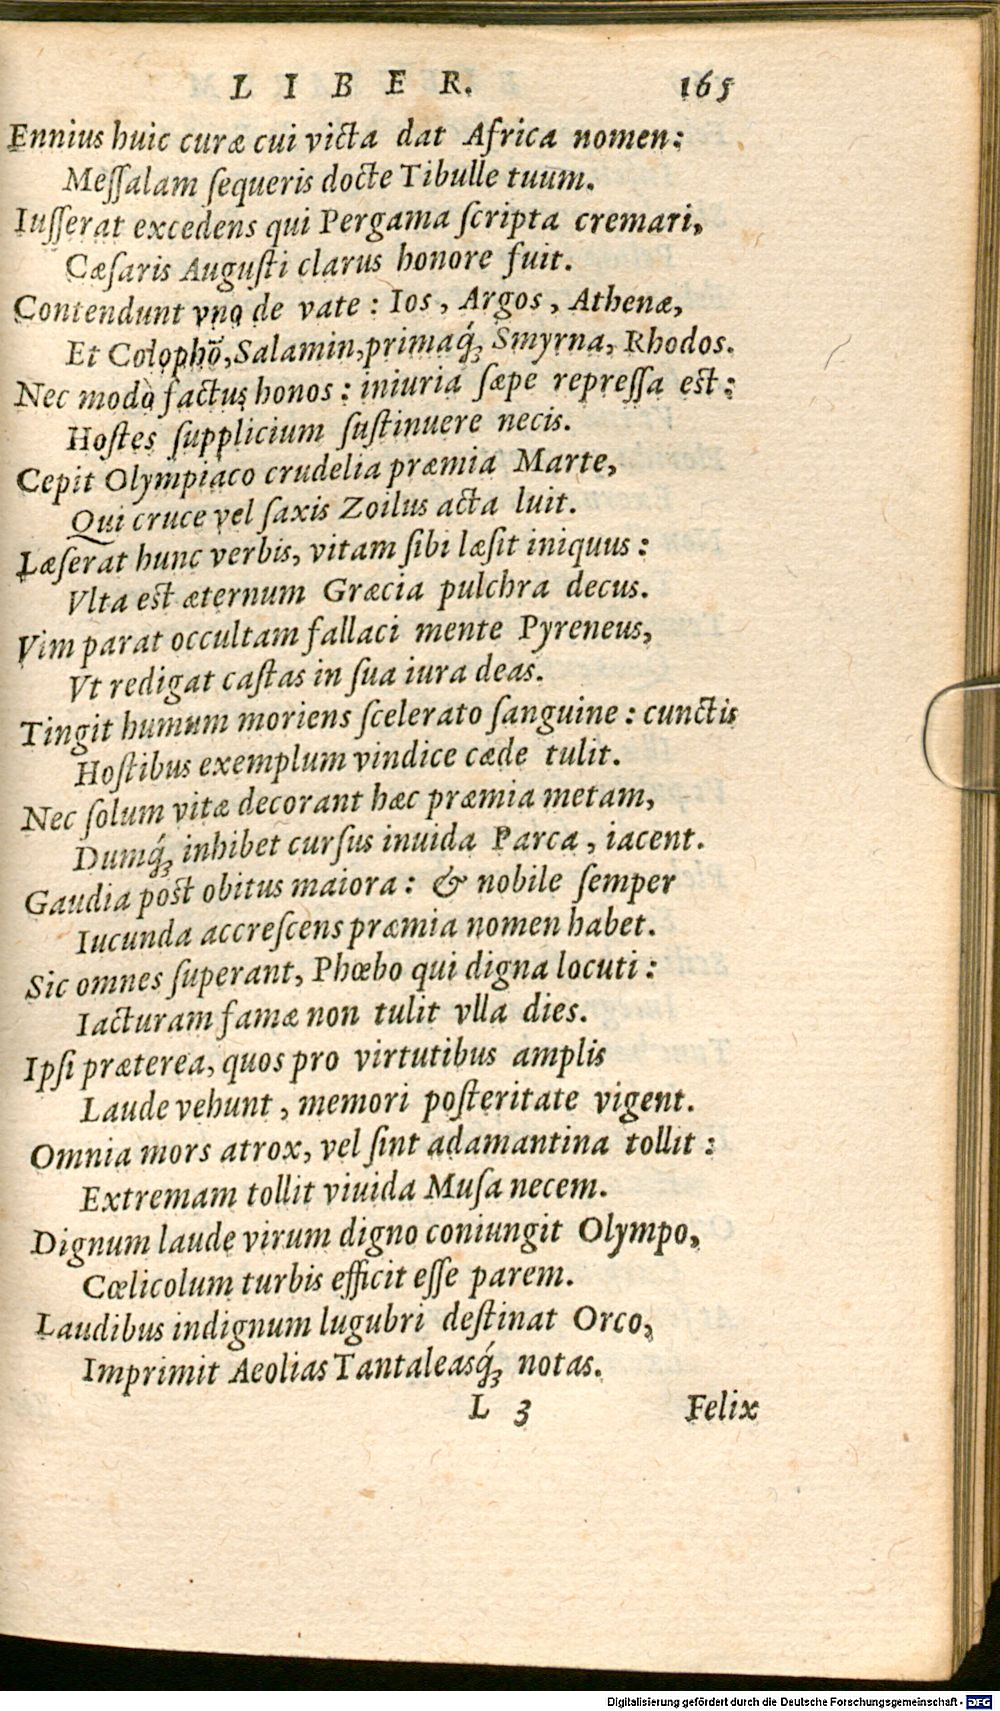 LIBER. 165
Ennius huic curæ cui victa dat Africa nomen:
Meſſalam ſequeris docte Tibulle tuum.
Iuſſerat excedens qui Pergama ſcripta cremari,
Cæſaris Auguſti clarus honore fuit.
Contendunt vno de vate: Ios, Argos, Athenæ,
Et Colophō, Salamin, primaq́ꝫ Smyrna, Rhodos.
Nec modò factus honos: iniuria ſæpe repreſſa est:
Hoſtes ſupplicium ſuſtinuere necis.
Cepit Olympiaco crudelia præmia Marte,
Qui cruce vel ſaxis Zoilus acta luit.
Læſerat hunc verbis, vitam ſibi læſit iniquus:
Vlta est æternum Græcia pulchra decus.
Vim parat occultam fallaci mente Pyreneus,
Vt redigat caſtas in ſua iura deas.
Tingit humum moriens ſcelerato ſanguine: cunctis
Hoſtibus exemplum vindice cæde tulit.
Nec ſolum vitæ decorant hæc præmia metam,
Dumq́ꝫ inhibet curſus inuida Parca, iacent.
Gaudia post obitus maiora: & nobile ſemper
Iucunda accreſcens præmia nomen habet.
Sic omnes ſuperant, Phœbo qui digna locuti:
Iacturam famæ non tulit vlla dies.
Ipſi præterea, quos pro virtutibus amplis
Laude vehunt, memori poſteritate vigent.
Omnia mors atrox, vel ſint adamantina tollit:
Extremam tollit viuida Muſa necem.
Dignum laude virum digno coniungit Olympo,
Cœlicolum turbis efficit eſſe parem.
Laudibus indignum lugubri deſtinat Orco,
Imprimit Aeolias Tantaleasq́ꝫ notas.
L 3 Felix
Digitalisierung gefördert durch die Deutsche Forschungsgemeinschaft - DFG